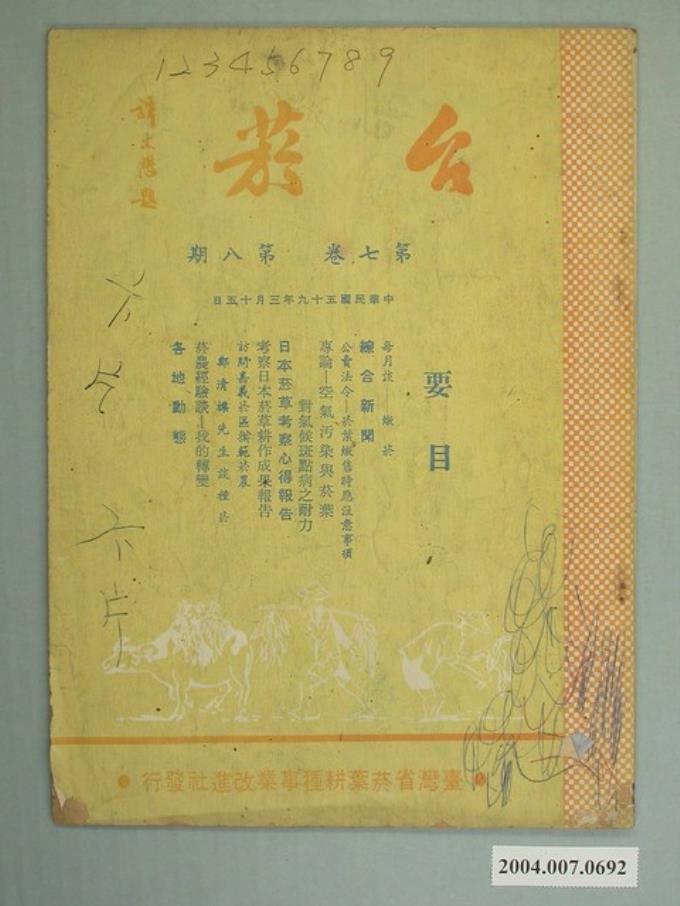 123456789
台菸
譚文懋題
第七卷 第八期
中華民國五十九年三月十五日
要目
每月談——繳菸
綜合新聞
公賣法令—菸葉繳售時應注意事項
專論—空氣汚染與菸葉
對氣候斑點病之耐力
日本菸草考察心得報告
考察日本菸草耕作成果報告
訪問嘉義菸區模範菸農
鄭清標先生談種菸
菸農經驗談—我的轉變
各地動態
•臺灣省菸葉耕種事業改進社發行•
2004.007.0692